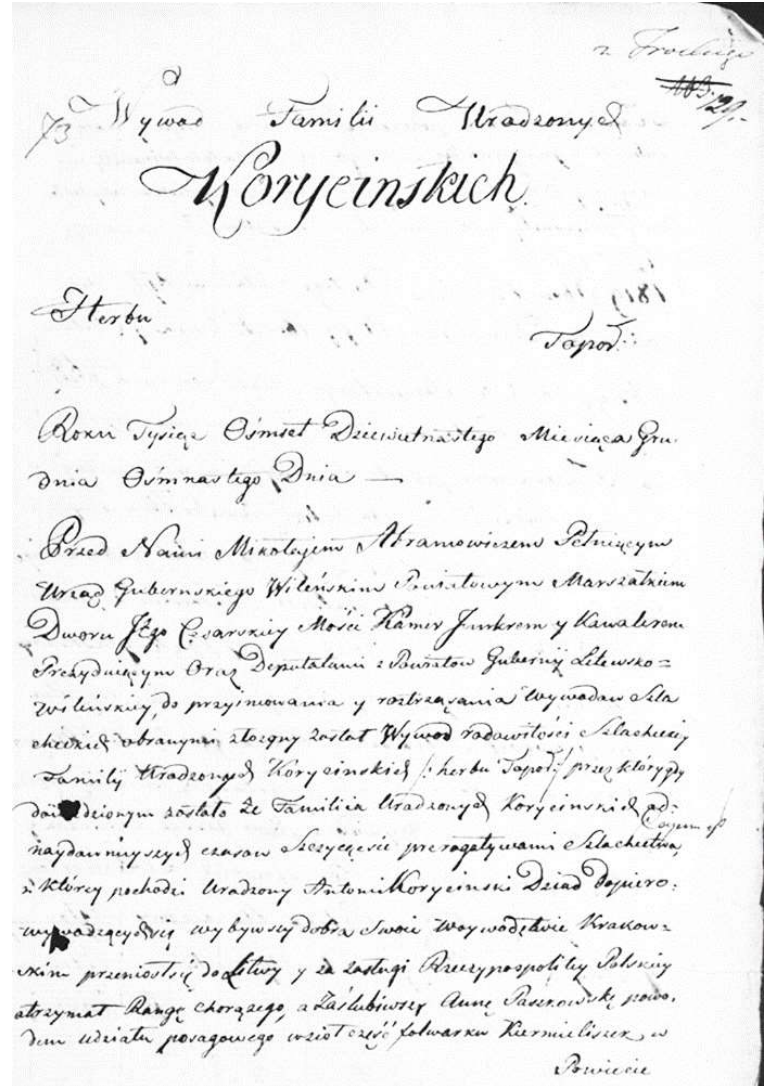 z Trockiego
129.
73 Wywod Familii Uradzonych
Korycinskich
Herbu
Topor:
Roku Tysiąc Ośmset Dziewietnastego Miesiąca Gru-
dnia Ośmnastego Dnia —
Przed Nami Mikołajem Abramowiczem Pełniącym
Urząd Gubernskiego Wileńskim Powiatowym Marszałkiem
Dworu Jego Cesarskiey Mości Kamer Junkrem y Kawalerem
Prezyduiącym Oraz Deputatami z Powiatow Gubernij Litewsko=
Wileńskiey, do przyimowania y roztrząsania wywodow Szla
checkich obranymi złozony został Wywod rodowitości Szlacheckiey
Familij Uradzonych Korycinskich /: herbu Topor :/ przez który gdy
dowiedzionym zostało że Familia Uradzonych Korycinskich od-
naydawnieyszych czasow Szczycąc się prerogatywami Szlachectwa,
z którey pochodzi Uradzony Antoni Korycinski Dziad dopiero-
wywodzących się wybywszy dobra Swoie w Woywodztwie Krakow=
skim przeniosł się do Litwy y za zasługi Rzeczypospolitey Polskiey
otrzymał Rangę chorązego, a zaślubiwszy Annę Paszkowskę powo-
dem udziału posagowego wzioł częśc folwarku Kiermieliszek w
Powiecie